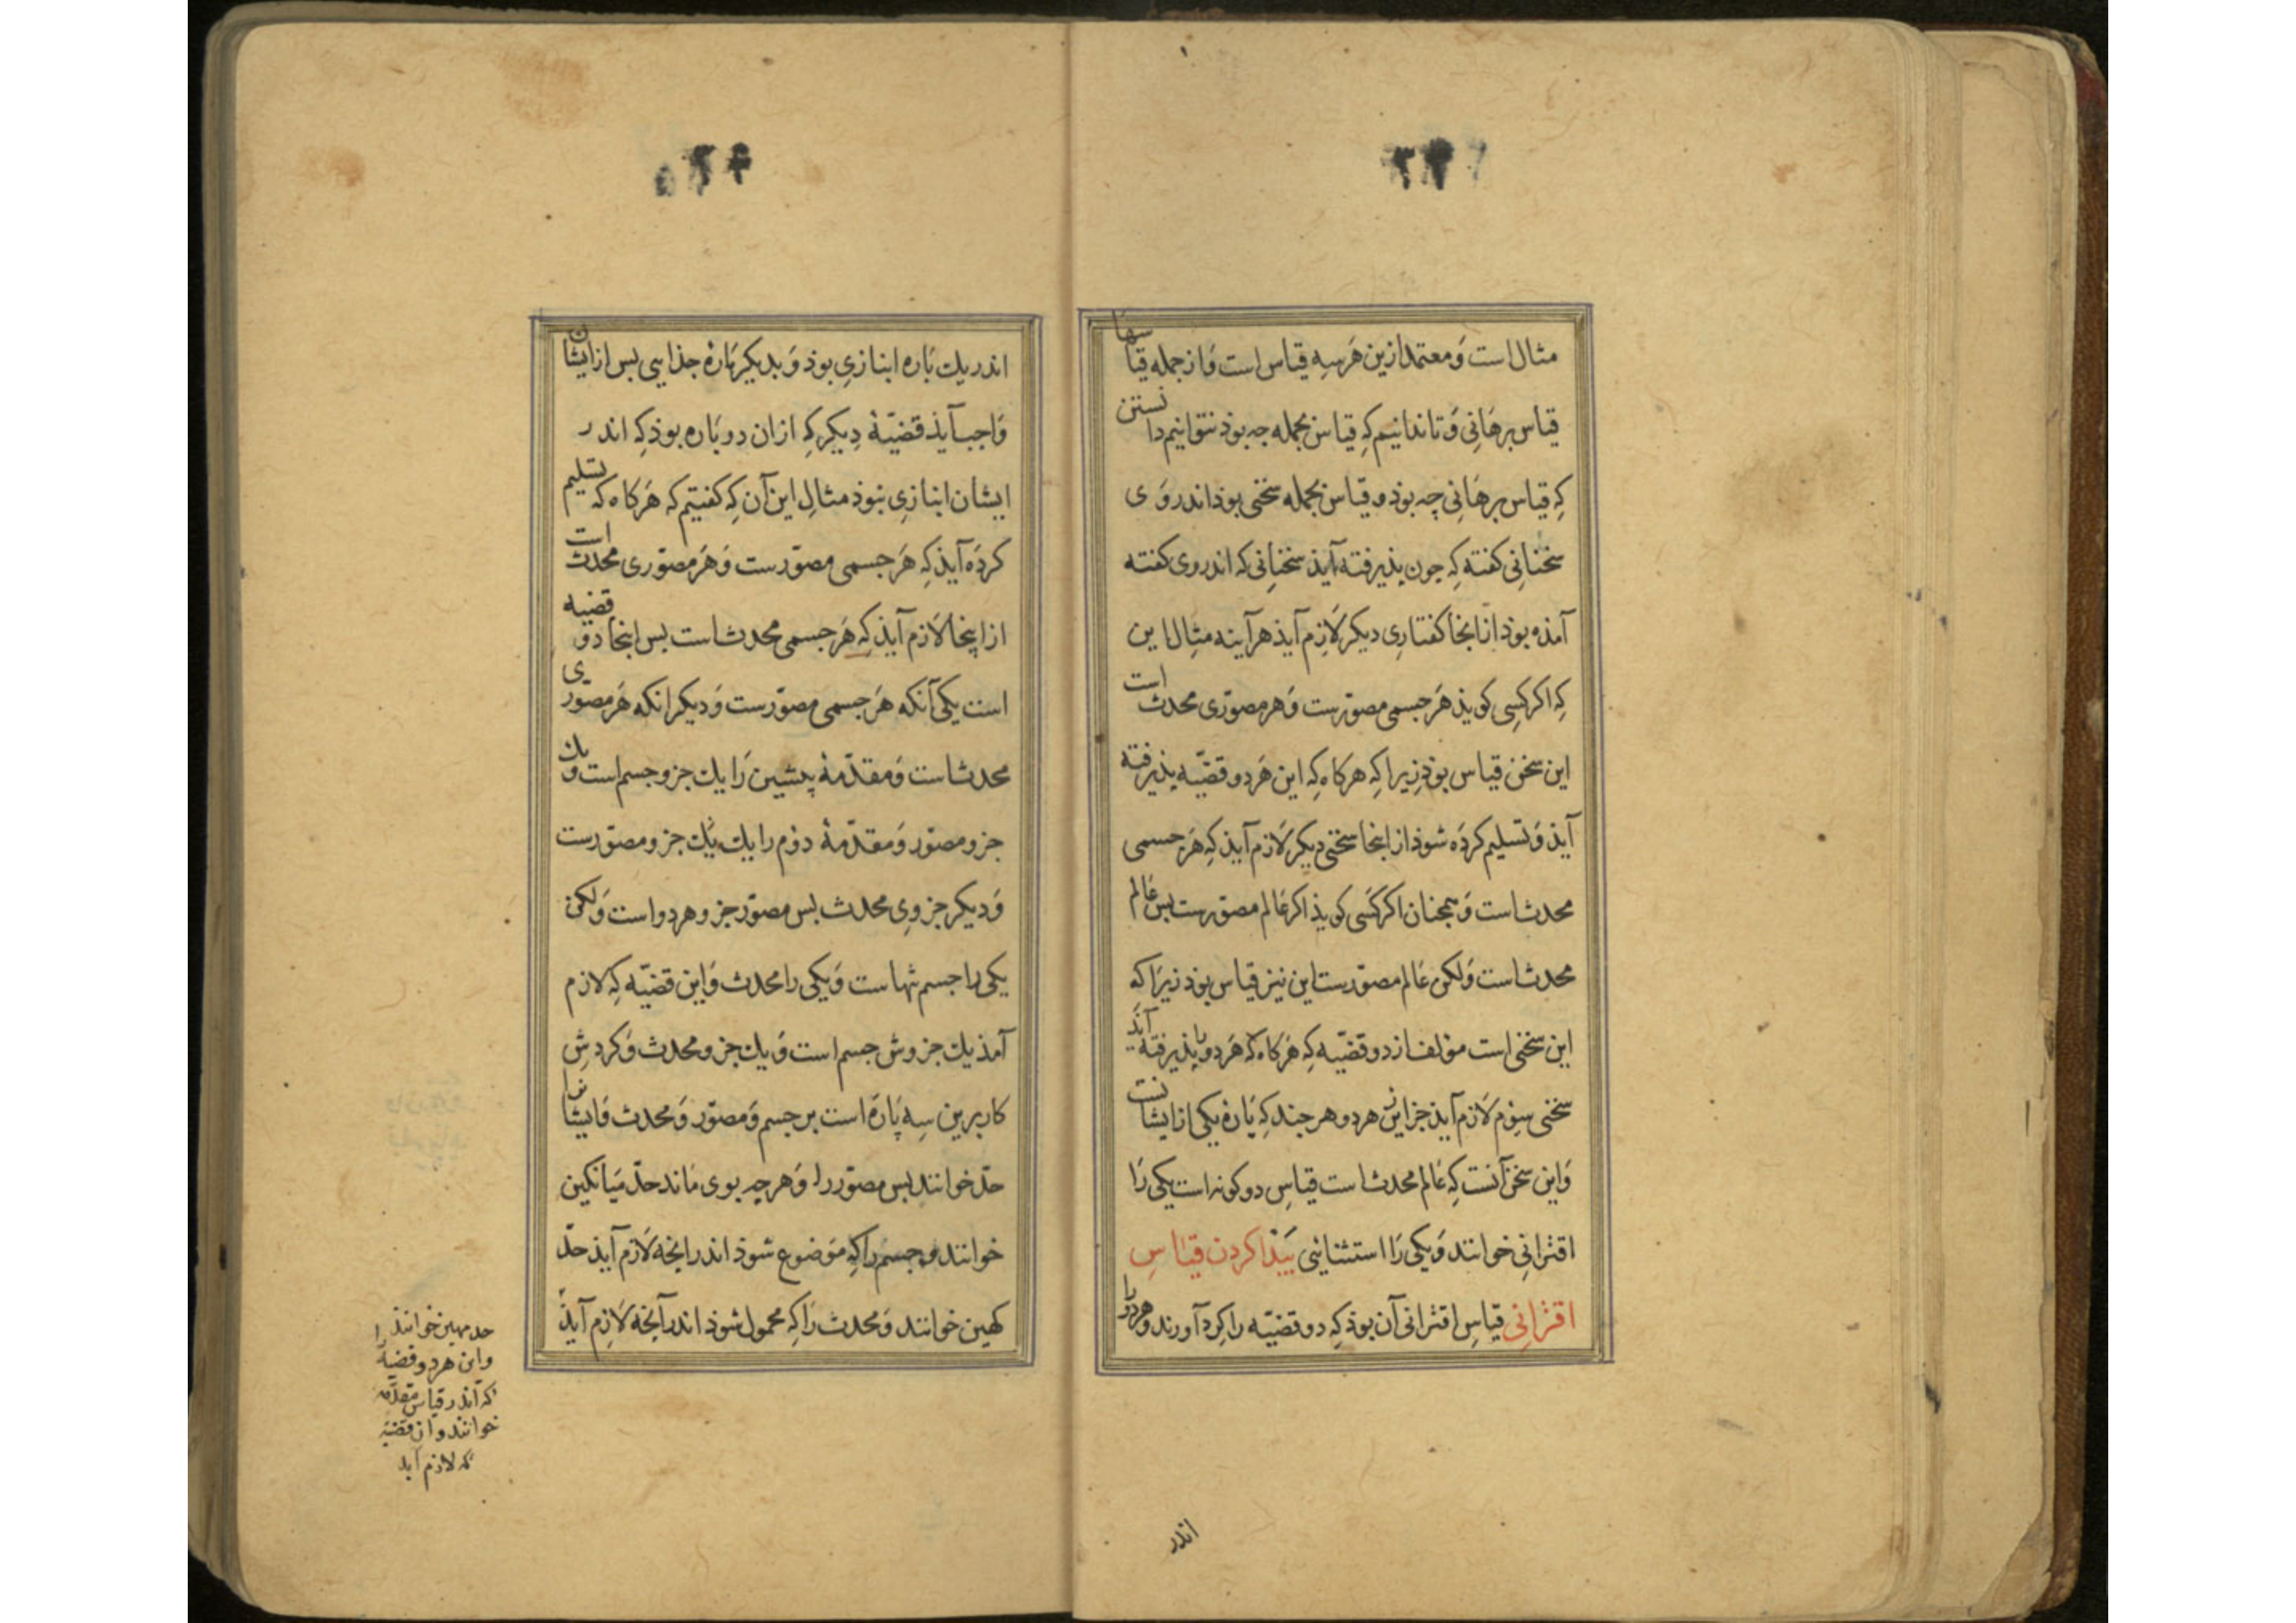 مثال است وَ معتمد ازین هَر سه قیاس است وَ از جمله قیاسها
قیاس برهَانِی وَ تا ندانیم کهِ قیاس بجمله چه بوذ نتوانیم دانستن
کهِ قیاس برهَانِی چه بوذ و قیاس بجمله سخنی بوذ اندر وَی
سخنانِی کفته کهِ چون پذیرفته آیذ سخنانِی که اندر وی کفته
آمذه بوذ از انجا کفتارِی دیکر لَازم آیذ هر آینه مثالِ این
کهِ اکر کسِی کویذ هَر جسمی مصوّرست وَ هر مصوّرَی محدث است
این سخن قیاس بوذ زیرا کهِ هرکاه کهِ این هَر دو قضیّه پذیرفته
آیذ وَ تسلیم کردَه شوذ از اینجا سخنی دیکر لَازم آیذ کهِ هَر جسمی
محدث است وَ همجنان اکر کسَی کویذ اکر عَالم مصوّرست بس عَالم
محدث است وَلکن عَالم مصوّرست این نیز قیاس بوذ زیرَا کهِ
این سخنی است مؤلف از دو قضیّه کهِ هَرکاه کهِ هَر دو را پذیرفته آیذ
سخنی سِوم لَازم آیذ جز این هر دو هر جند کهِ پَارهٔ یکی از ایشانست
وَ این سخن آنست کهِ عَالم محدث است قیاسِ دو کونه است یکی رَا
اقترانِی خوانند وَ یکی رَا استثنایی پَیْذا کردن قیَاسِ
اقترانِی قیاسِ اقترانی آن بوذ کهِ دو قضیّه را کِرد آورند و هر دو را
اندر
اندر یك پَاره انبازیِ بوذ وَ بدیکر پَارهٔ جذایی بس از ایشان
وَاجب آیذ قضیّهٔ دِیکر کهِ از ان دو پَاره بوذ کهِ اندر
ایشان انبازیِ نبوذ مثالِ این آن کهِ کفتیم که هَرکاه که تسلیم
کردَه آیذ کهِ هَر جسمی مصوّرست وَ هَر مصوّری محدث است
از اینجا لَازم آیذ کهِ هَر جسمی محدث است بس اینجا دو قضیه
است یکی آنکه هَر جسمی مصوّرست وَ دیکر انکه هَر مصوّری
محدث است وَ مقدّمهٔ پیشین رَا یك جزو جسم است و یك
جزو مصوّر وَ مقدّمهٔ دوُم را یك یَك جزو مصوّرست
وَ دیکر جزویِ محدث بس مصوّر جزو هر دو است وَلکن
یکی را جسم تنهاست وَ یکی را محدث وَ این قضیّه کهِ لَازم
آمذ یك جزوش جسم است وَ یك جزو محدث وَ کردشِ
کار برین سِه پَارَه است بر جسم وَ مصوّر وَ محدث وَ ایشانرا
حدّ خوانند بس مصوّر را وَ هر چه بوی مَاند حدّ میَانکین
خوانند و جسم را کهِ موَضوع شوذ اندر انجه لَازم آیذ حدّ
کهین خوانند وَ محدث رَا کهِ محمول شوذ اندر آنجه لَازِم آیذ
حد مهین خوانند
و این هر دو قضیه را
که اندر قیاس مقدّمه
خوانند و ان قضیه
که لازم آید